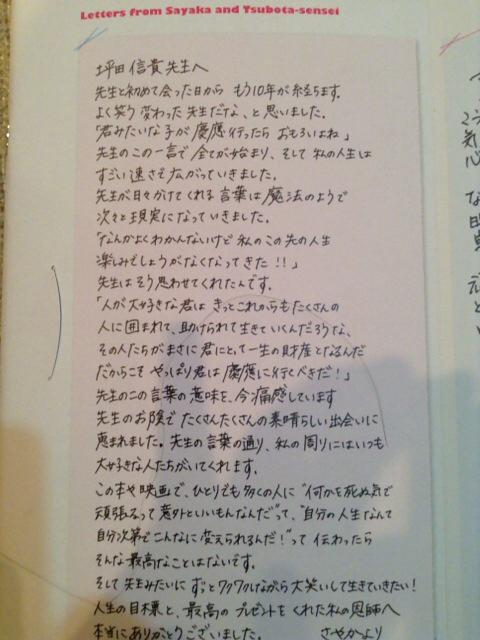 Letters from Sayaka and Tsubota-sensei
坪田信貴先生へ
先生と初めて会った日から もう10年が経ちます。
よく笑う変わった先生だな、と思いました。
「君みたいな子が慶應行ったら おもろいよね」
先生のこの一言で全てが始まり、そして私の人生は
すごい速さで広がっていきました。
先生が日々かけてくれる言葉は魔法のようで
次々と現実になっていきました。
「なんかよくわかんないけど 私のこの先の人生
楽しみでしょうがなくなってきた!!」
先生はそう思わせてくれたんです。
「人が大好きな君は きっとこれからもたくさんの
人に囲まれて、助けられて生きていくんだろうな、
その人たちがまさに君にとって一生の財産となるんだ
だからこそ やっぱり君は慶應に行くべきだ!」
先生のこの言葉の意味を、今痛感しています
先生のお陰で たくさんたくさんの素晴らしい出会いに
恵まれました。先生の言葉の通り、私の周りにはいつも
大好きな人たちがいてくれます。
この本や映画で、ひとりでも多くの人に"何かを死ぬ気で
頑張るって意外といいもんなんだ"って、"自分の人生なんて
自分次第でこんなに変えられるんだ!"って 伝わったら
そんな最高なことはないです。
そして先生みたいに ずっとワクワクしながら大笑いして生きていきたい!
人生の目標と、最高のプレゼントをくれた私の恩師へ
本当にありがとうございました。 さやかより